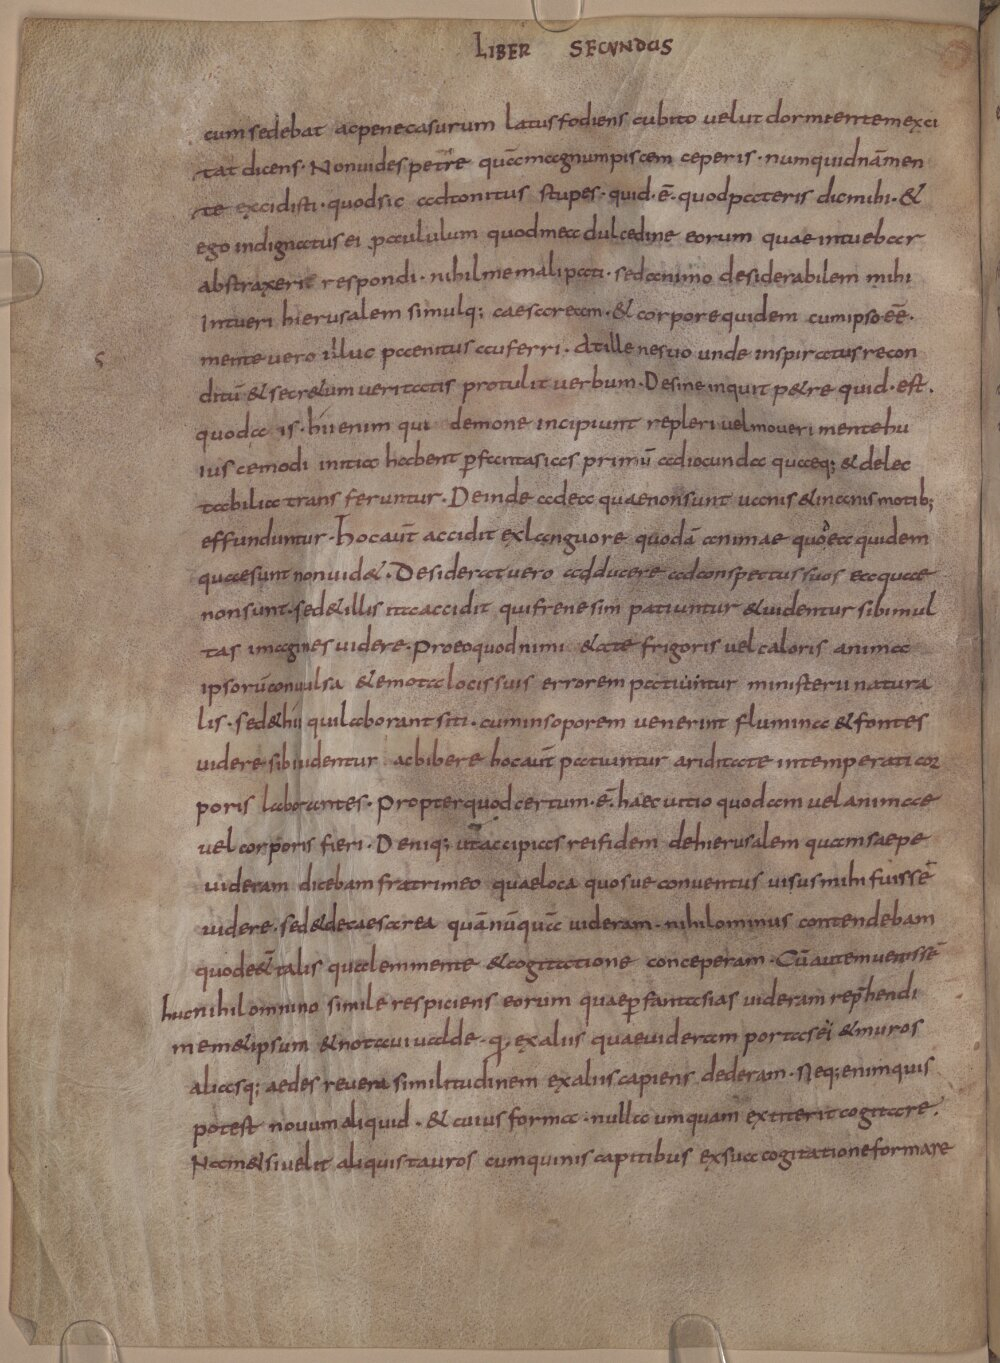 LIBER SECVNDUS
cum sedebat ac pene casurum latus fodiens cubito velut dormientem exci
tat dicens · Non uides petre quā magnum piscem ceperis · numquid nām en
te excidisti · quod sic adtonitus stupes · quid · ē · quod pateris dic mihi · &
ego indignatus ei paululum quod me a dulcedine eorum quae intuebar
abstraxerit respondi · nihil me mali pati · sed animo desiderabilem mihi
intueri hierusalem simulq; caesaream · & corpore quidem cum ipso eē ·
mente vero illuc paenitus auferri · at ille nescio unde inspiratus recon
ditū & secr&um veritatis protulit verbum · Desine inquit p&re quid · est ·
quod a is · hii enim qui demone incipiunt repleri vel moueri mente hu
ius cemodi initia habent p fantasias primū ad iocunda quaeq; & delec
tabilia trans feruntur · Deinde ad ea quae non sunt uanis & inanis motib;
effunduntur · hoc aūt accidit ex languore quodā animae quo ea quidem
quae sunt non uid& · Desiderat vero adducere ad conspectus suos ea quae
non sunt · sed & illis ita accidit qui frenesim patiuntur & uidentur sibi mul
tas imagines uidere · Pro eo quod nimi &ate frigoris vel caloris anima
ipsorū conuulsa & emota locis suis errorem patiuntur ministerii natura
lis · sed & hii qui laborant siti · cum in soporem venerint flumina & fontes
uidere sibi uidentur ac bibere hoc aūt patiuntur ariditate intemperati cor
poris laborantes · Propter quod certum · ē · haec uitio quodam vel animae
vel corporis fieri · Deniq; ut accipias rei fidem de hierusalem quam saepe
uideram dicebam fratri meo quae loca quosue conventus uisus mihi fuissē
videre · sed & de caesarea quā nūquā uideram · nihilominus contendebam
quod eēt talis qualem mente & cogitatione conceperam · Cū autem uenissē
huc nihil omnino simile respiciens eorum quae p fantasias uideram rephendi
mem&ipsum & notaui ualde · q ex aliis quae uideram portas ei & muros
aliasq; aedes revera similitudinem ex aliis capiens dederam · Neq; enim quis
potest novum aliquid · & cuius forma · nulla umquam extiterit cogitare ·
Nam & si uelit aliquis tauros cum quinis capitibus ex sua cogitatione formare